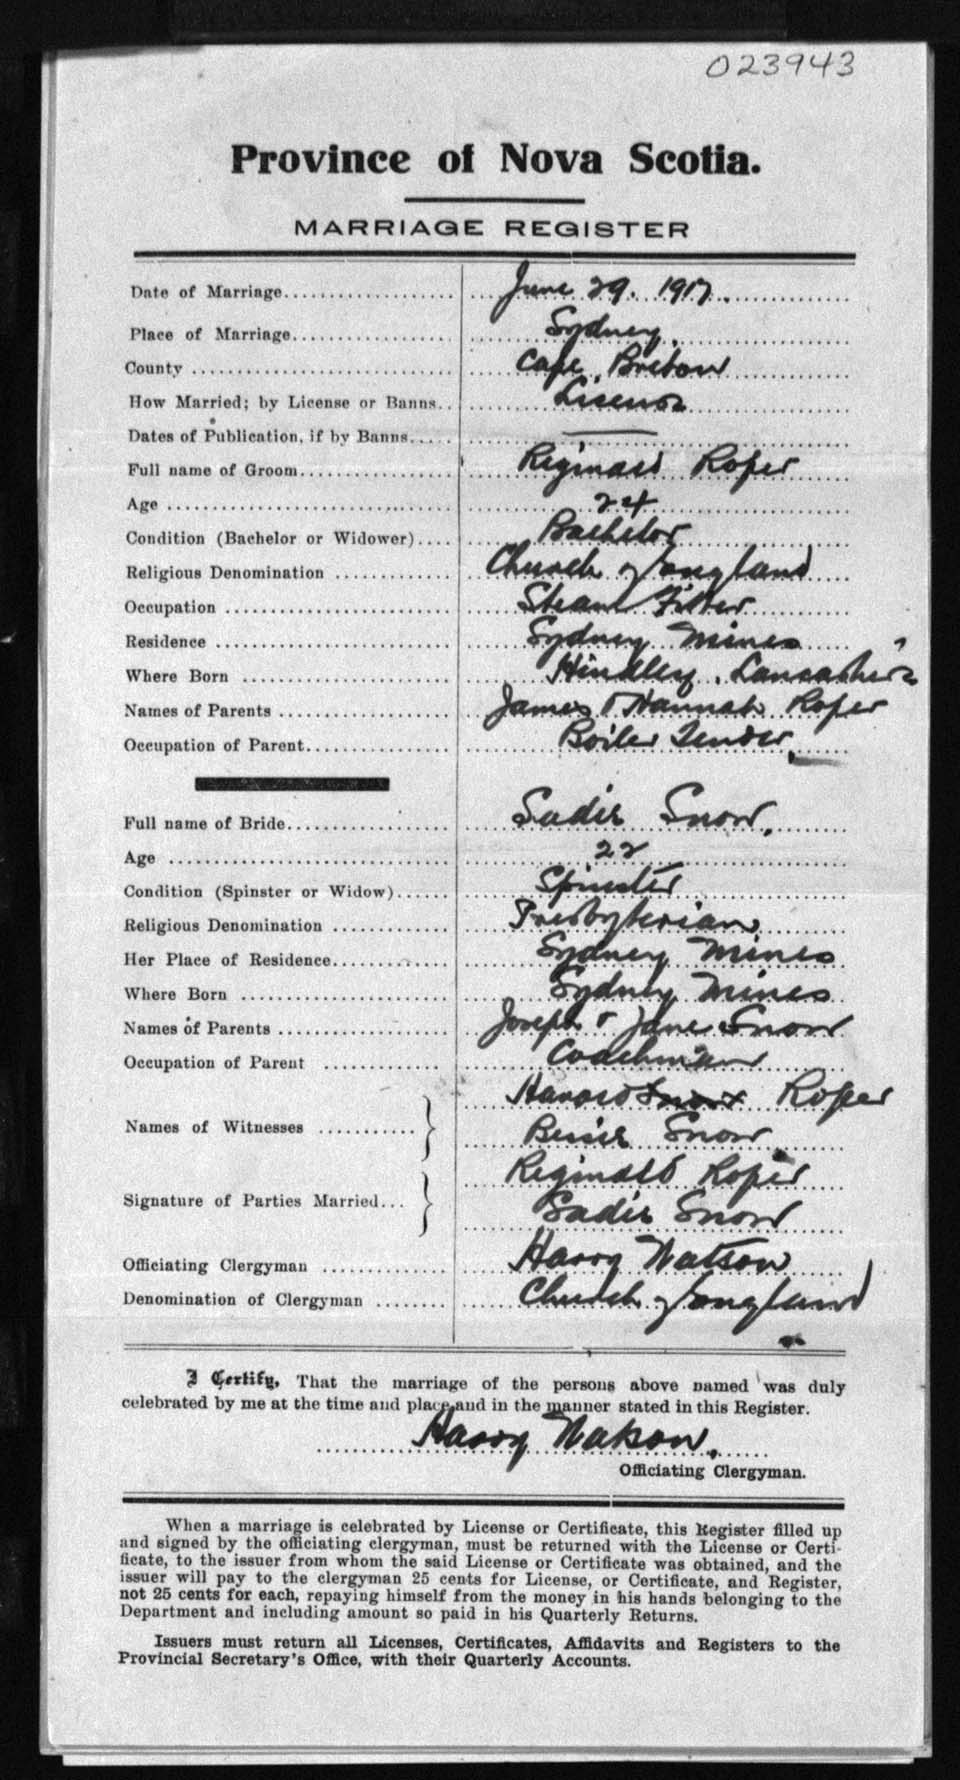 023943
Province of Nova Scotia.
MARRIAGE REGISTER
Date of Marriage.................... June 29. 1917.
Place of Marriage.................... Sydney.
County .................... Cape Breton
How Married; by License or Banns.. License
Dates of Publication, if by Banns..... —
Full name of Groom.................... Reginald Roper
Age .................... 24
Condition (Bachelor or Widower).... Bachelor
Religious Denomination ............ Church of England
Occupation .................... Steam Fitter
Residence .................... Sydney Mines
Where Born .................... Hindley, Lancashire
Names of Parents .................... James & Hannah Roper
Occupation of Parent.................... Boiler Tender
Full name of Bride.................... Sadie Snow.
Age .................... 22
Condition (Spinster or Widow)...... Spinster
Religious Denomination ............ Presbyterian
Her Place of Residence............ Sydney Mines
Where Born .................... Sydney Mines
Names of Parents .................... Joseph & Jane Snow
Occupation of Parent ............ Coachman
Harold Snow Roper
Names of Witnesses ............ }
Bessie Snow
Reginald Roper
Signature of Parties Married... }
Sadie Snow
Officiating Clergyman ............ Harry Watson
Denomination of Clergyman ........ Church of England
I Certify, That the marriage of the persons above named was duly
celebrated by me at the time and place and in the manner stated in this Register.
Harry Watson.
Officiating Clergyman.
When a marriage is celebrated by License or Certificate, this Register filled up
and signed by the officiating clergyman, must be returned with the License or Certi-
ficate, to the issuer from whom the said License or Certificate was obtained, and the
issuer will pay to the clergyman 25 cents for License, or Certificate, and Register,
not 25 cents for each, repaying himself from the money in his hands belonging to the
Department and including amount so paid in his Quarterly Returns.
Issuers must return all Licenses, Certificates, Affidavits and Registers to the
Provincial Secretary's Office, with their Quarterly Accounts.